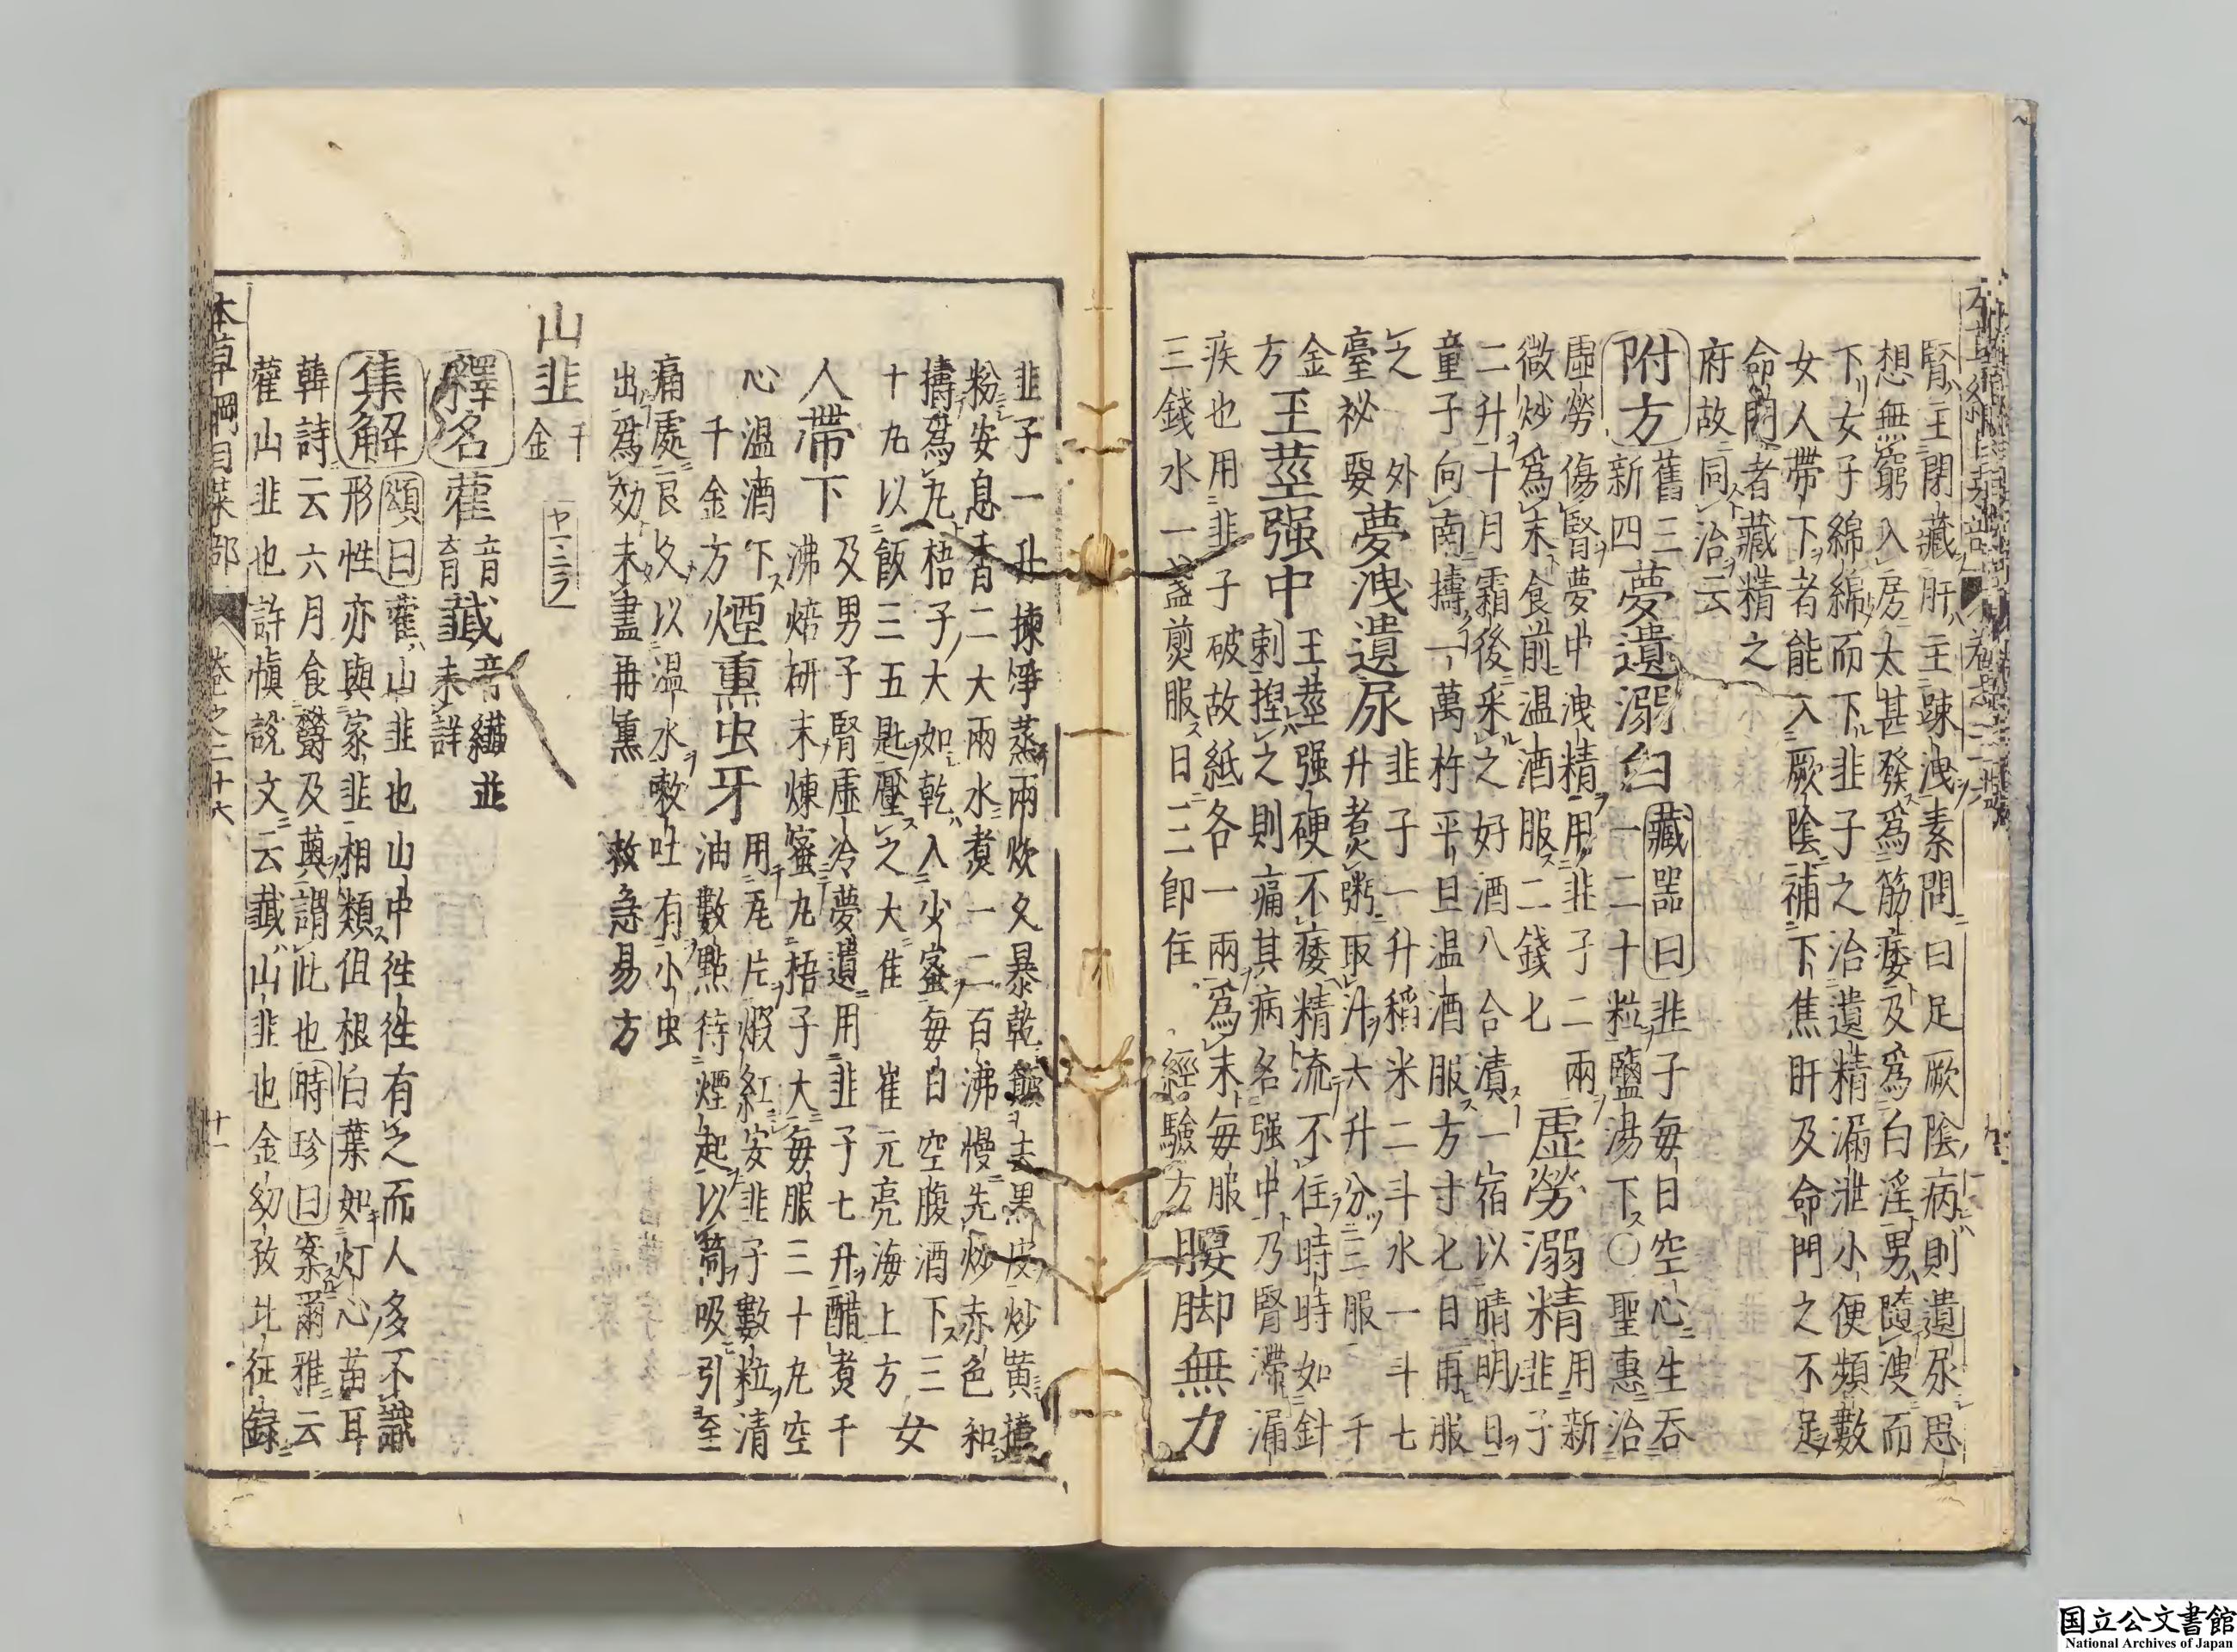 腎主閉藏肝主疎洩素問曰足厥陰病則遺尿思
想無窮入房太甚發爲筋痿及爲白淫男隨洩而
下女子綿綿而下韭子之治遺精漏泄小便頻數
女人帶下者能入厥陰補下焦肝及命門之不足
命門者藏精之
府故同治云
附方舊三新四夢遺溺白藏噐曰韭子每日空心生吞
一二十粒鹽湯下○聖惠治
虛勞傷腎夢中洩精用韭子二兩
微炒爲末食前温酒服二錢七
虛勞溺精用新韭子
二升十月霜後采之好酒八合漬一宿以晴明日
童子向南擣一萬杵平旦温酒服方寸七日再服
之 外
臺祕要夢洩遺尿韭子一升稻米二斗水一斗七
升煮粥取汁六升分三服 千
金
方玉莖强中玉莖强硬不痿精流不住時時如針
刺揑之則痛其病名强中乃腎滯漏
疾也用韭子破故紙各一兩爲末每服
三錢水一盞煎服日三即住 經驗方
腰脚無力
韭子一升揀淨蒸兩炊久暴乾簸去黑皮炒黃擣
粉安息香二大兩水煮一二百沸慢火炒赤色和
擣爲丸梧子大如乾入少蜜每日空腹酒下三
十丸以飯三五匙壓之大佳 崔元亮海上方
女人帶下及男子腎虛冷夢遺用韭子七升醋煮千
沸焙研末煉蜜丸梧子大每服三十丸空
心温酒下
千金方
煙熏虫牙用瓦片煅紅安韭子數粒清
油數點待煙起以筒吸引至
痛處良久以温水嗽吐有小虫
出爲効未盡再熏 救急易方
山韭千金
ヤマニラ
釋名藿音育䪥音纖並未詳
集解頌曰藿山韭也山中往往有之而人多不識
形性亦與家韭相類但根白葉如灯心苗耳
韓詩云六月食鬱及薁謂此也時珍曰案爾雅云
藿山韭也許愼說文云䪥山韭也金幼孜北征錄
本草綱目菜部 卷之二十六 十一
国立公文書館
National Archives of Japan